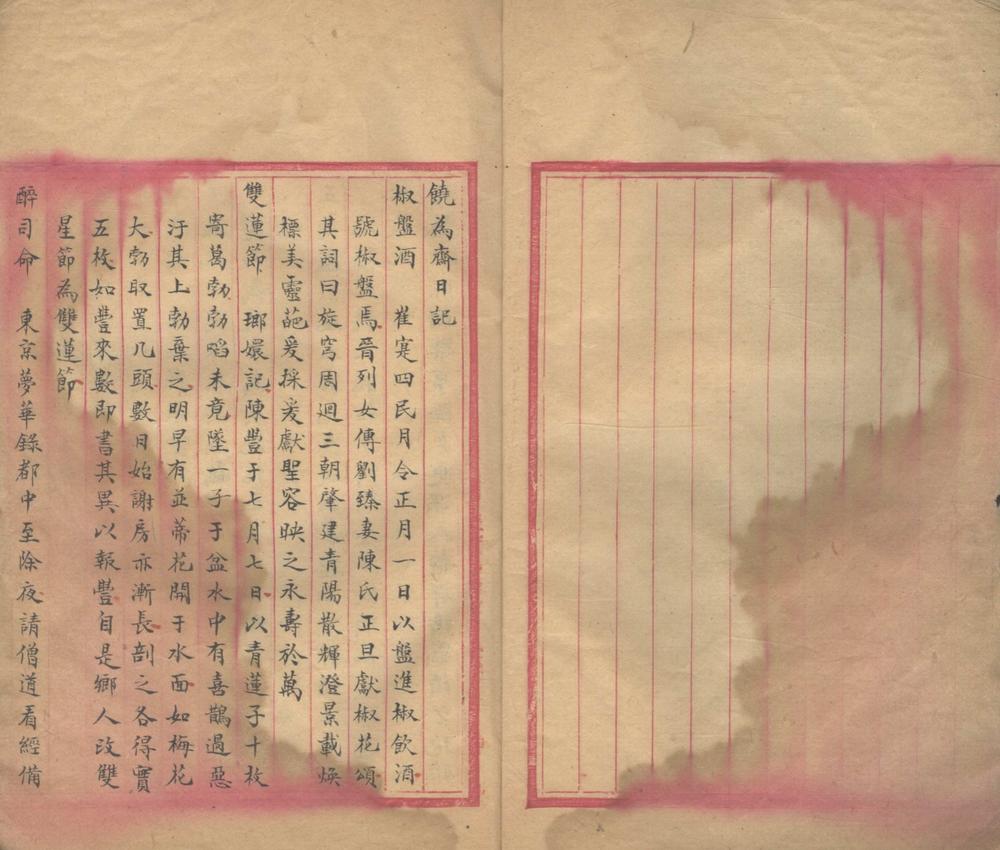 饒為齋日記
椒盤酒　崔寔四民月令正月一日以盤進椒飲酒
號椒盤焉晉列女傳劉臻妻陳氏正旦獻椒花頌
其詞曰旋穹周迴三朝肇建青陽散輝澄景載煥
標美靈葩爰採爰獻聖容映之永壽於萬
雙蓮節　瑯嬛記陳豐于七月七日以青蓮子十枚
寄葛勃勃啗未竟墜一子于盆水中有喜鵲過惡
汙其上勃棄之明早有並蒂花開于水面如梅花
大勃取置几頭數日始謝房亦漸長剖之各得實
五枚如豐來數即書其異以報豐自是鄉人改雙
星節為雙蓮節
醉司命　東京夢華錄都中至除夜請僧道看經備